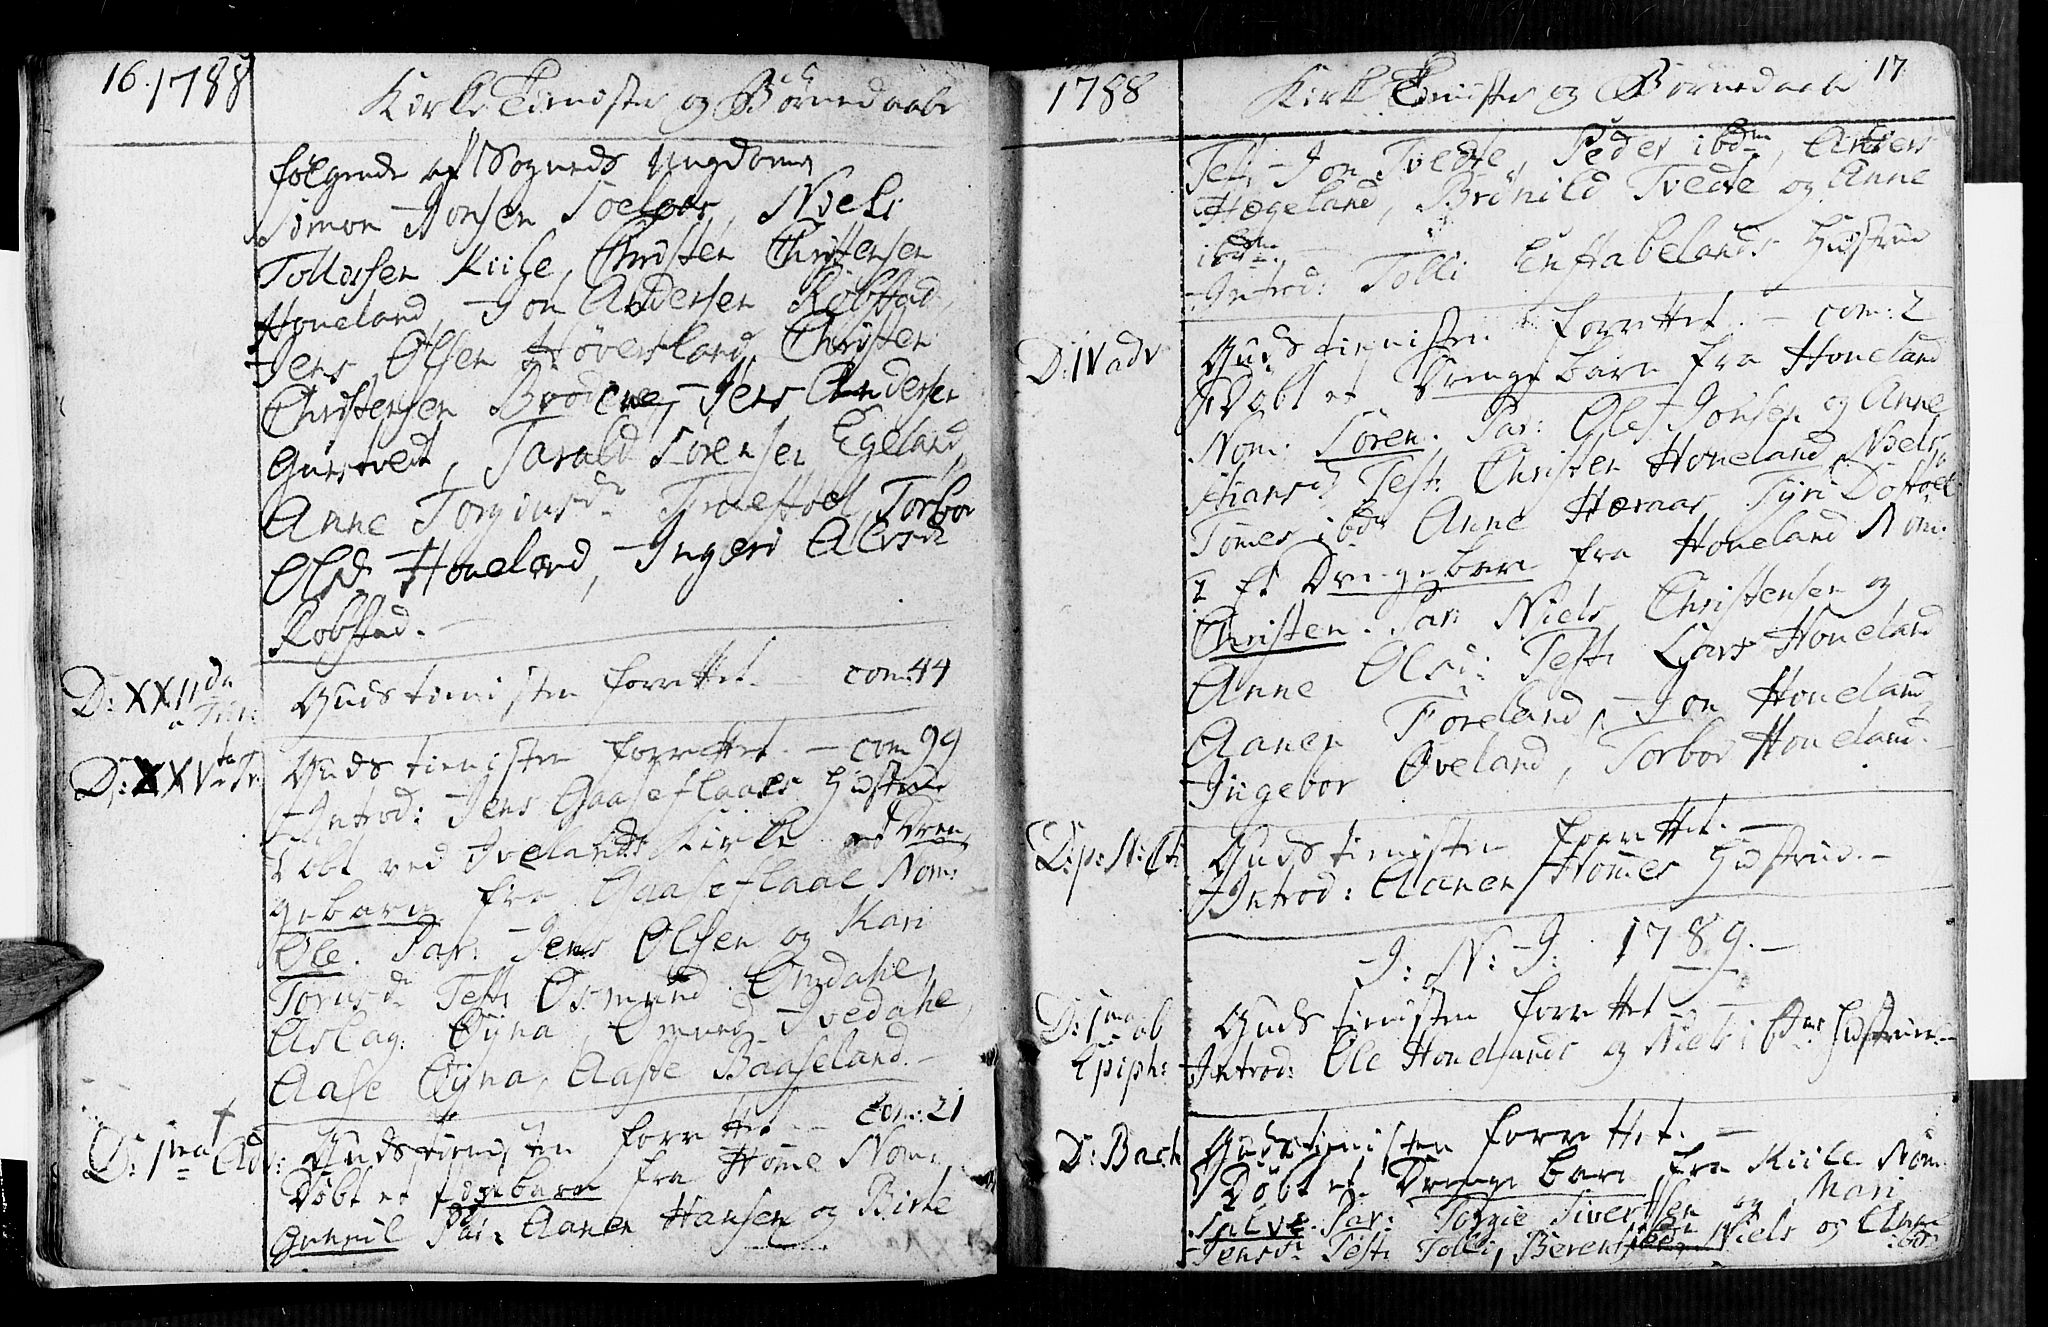 16. 1788
Kirke Tieniste og Børnedaab
følgende af Sognets Ungdom
Simon Jonsen Toelaas, Niels
Tollufsen Kiile, Christen Christensen
Honeland, Jon Andersen Robstad,
Jens Olsen Høversland, Christen
Christensen Brodene, Jens Andersen
Gunstvedt, Tarald Sørensen Egeland,
Anne Torgiusdr Tveithol, Torbor
Olsd. Honeland, Ingeri Alvsdr
Robstad.
D: XXIIda a Trin: Guds tienisten forrettet. com: 44
D: XXVta Tr Guds tienisten forrettet. — com 99
Introd: Jens Gaaseflaaes Hustrue
Døbt ved Ivelands Kirke et Dren-
gebarn fra Gaaseflaae Nom:
Ole. Par: Jens Olsen og Kari
Torusdr Test: Osmund Omdahl,
Aslag: Øyna, Omund Ivedahl,
Aase Øyna, Aaste Baaseland. —
D: 1ma Adv: Guds tienisten forrettet. — Com: 21
Døbt et Pigebarn fra Home Nom:
Gunvil Par: Aanen Hansen og Birte
1788
Kirke Tieniste og Børnedaab
17
Test: Jon Tvedte, Peder ibdm, Anders
Hægeland, Brønild Tvedte og Anne
ibdm. —
Introd: Tolli Enstabelands Hustrue
D: IV adv Guds tienisten forrettet. — com: 2
Døbt et Drenge barn fra Honeland
Nom: Søren. Par: Ole Jonsen og Anne
Stiansd Test: Christen Honeland, Niels,
Tomes ibdm Anne Hæraas, Tyri Dostøl
2 Et Drengebarn fra Honeland Nom.
Christen. Par: Niels Christensen og
Anne Olsd: Test: Lars Honeland
Aanen Foreland, Jon Honeland,
Ingebor Øveland, Torbor Honeland.
D: p: N: Chti Guds tienisten forrettet. —
Introd: Aanen Homes Hustrue. —
I: N: I: 1789. —
D: 1ma ab Epiph: Guds tienisten forrettet —
Introd: Ole Honelands og Niels ibdms Hustruer. —
D: Bach Guds tienisten forrettet. —
Døbt et Drenge barn fra Kiile Nom:
Salve. Par: Torgie Sivertsen og Mari
Jensdr Test: Tolli, Berent ibdm Niels og Anne ibdm